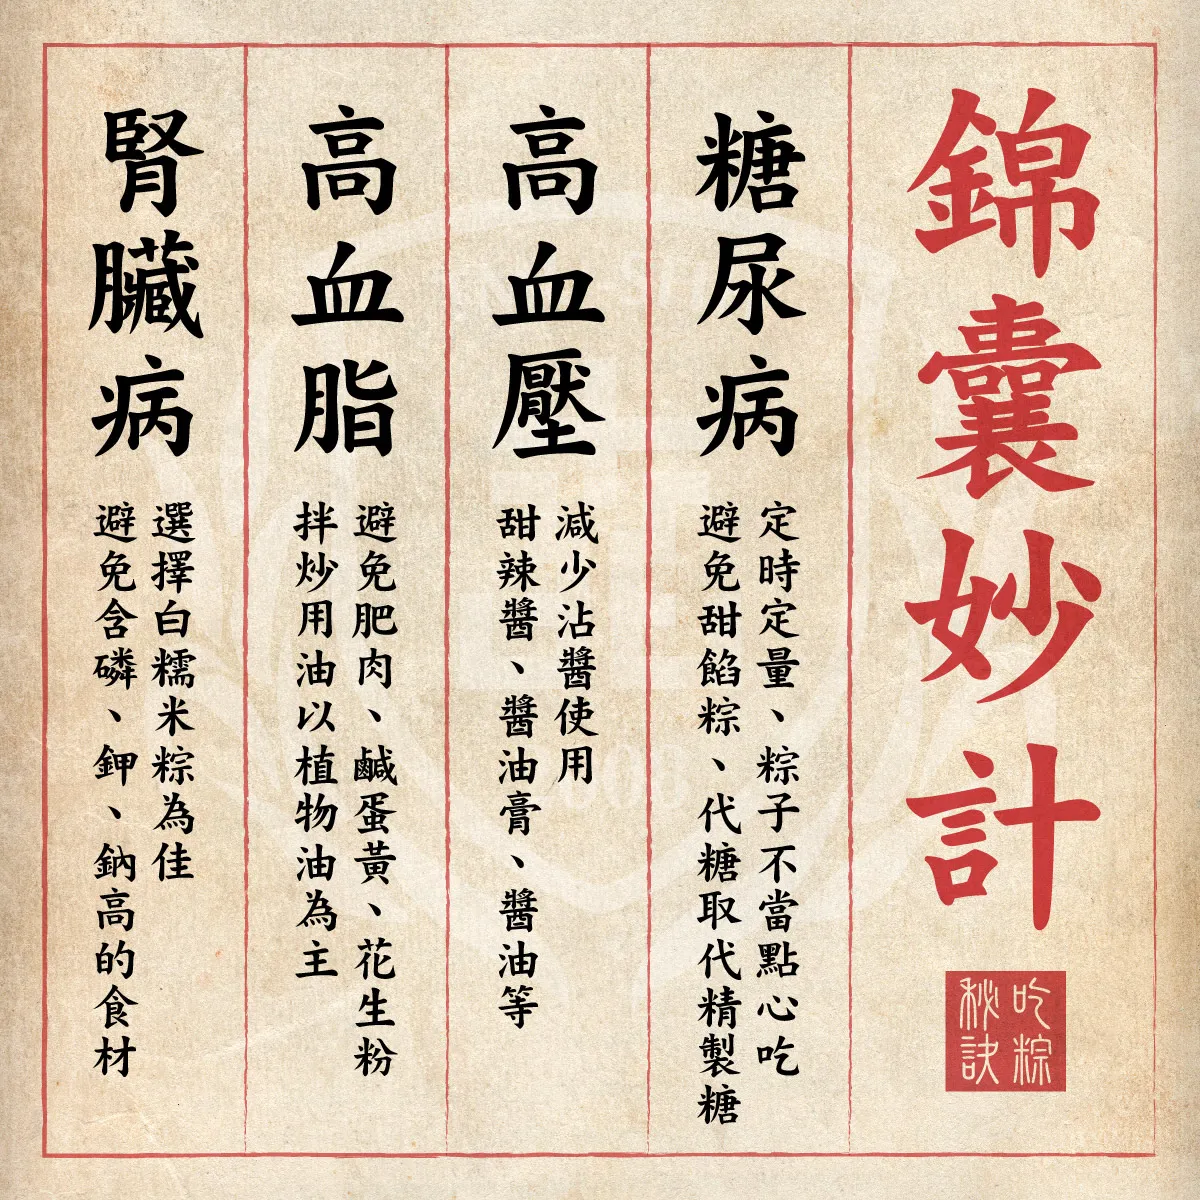 錦囊妙計
吃粽
秘訣
糖尿病
定時定量、粽子不當點心吃
避免甜餡粽、代糖取代精製糖
高血壓
減少沾醬使用
甜辣醬、醬油膏、醬油等
高血脂
避免肥肉、鹹蛋黃、花生粉
拌炒用油以植物油為主
腎臟病
選擇白糯米粽為佳
避免含磷、鉀、鈉高的食材